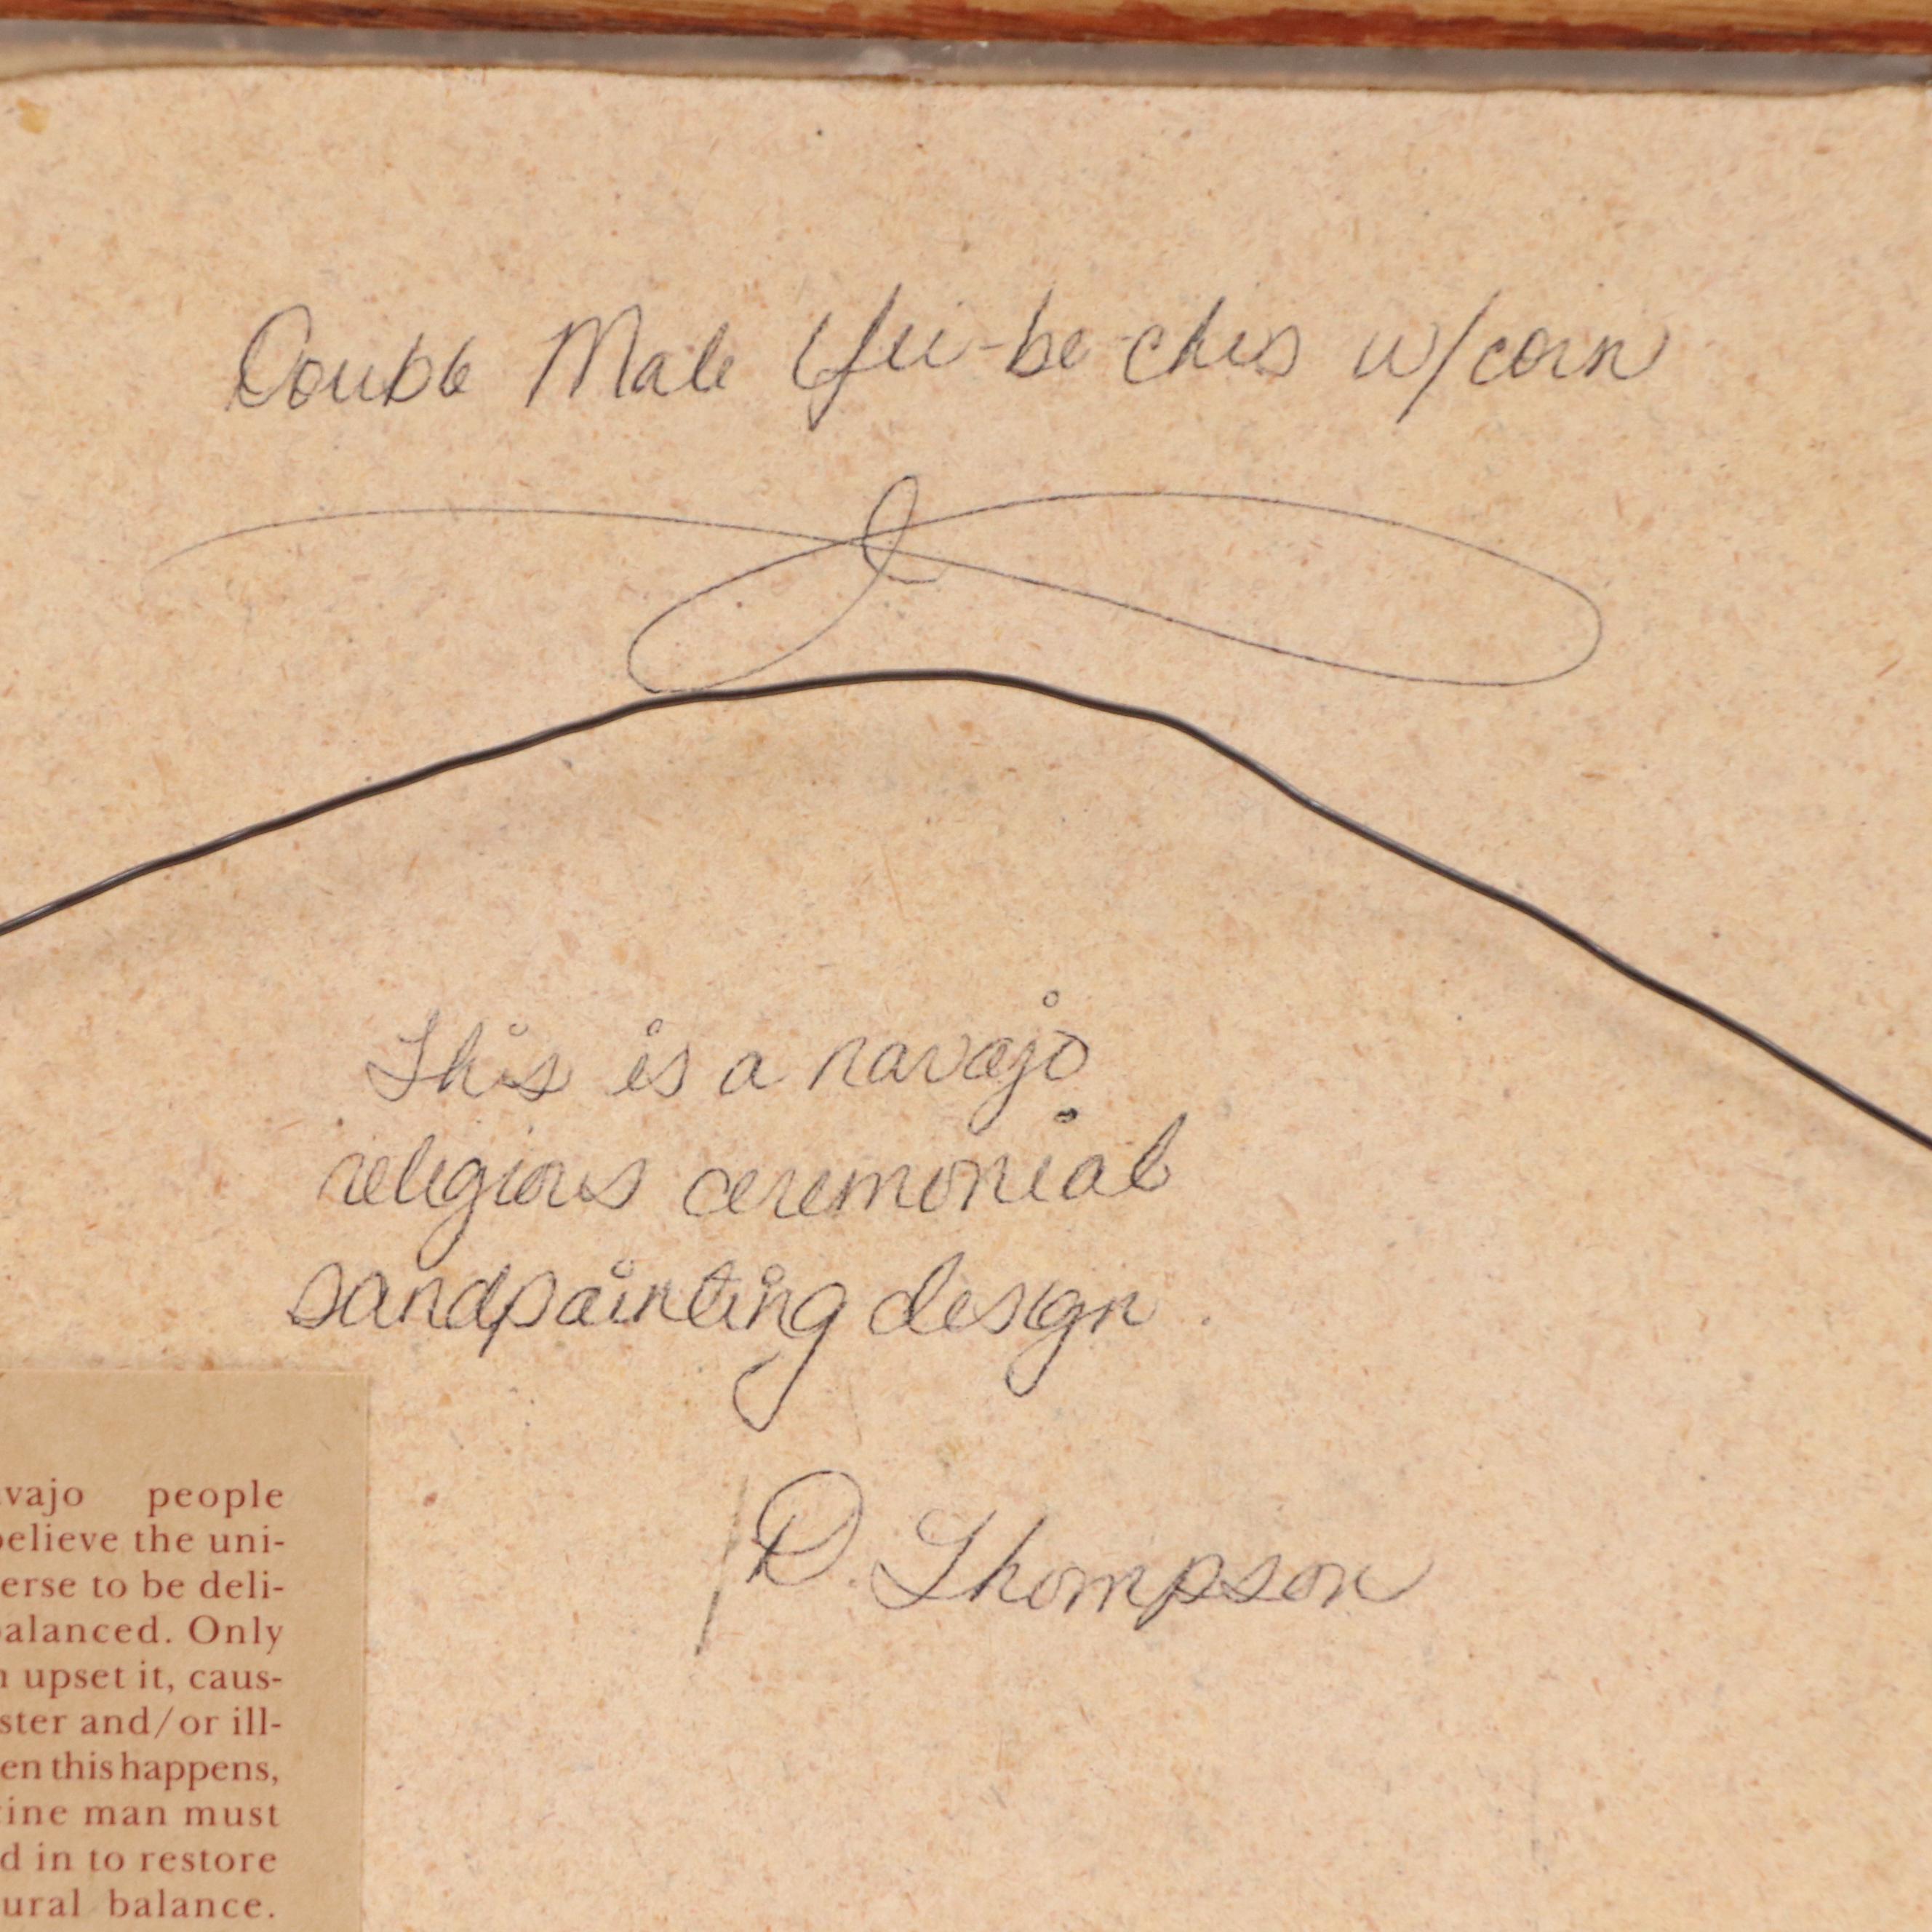 Double Male Yei-be-cheis w/corn
This is a navajo
religious ceremonial
sandpainting design.
D. Thompson
vajo people
believe the uni-
erse to be deli-
balanced. Only
n upset it, caus-
ster and/or ill-
en this happens,
cine man must
d in to restore
ural balance.